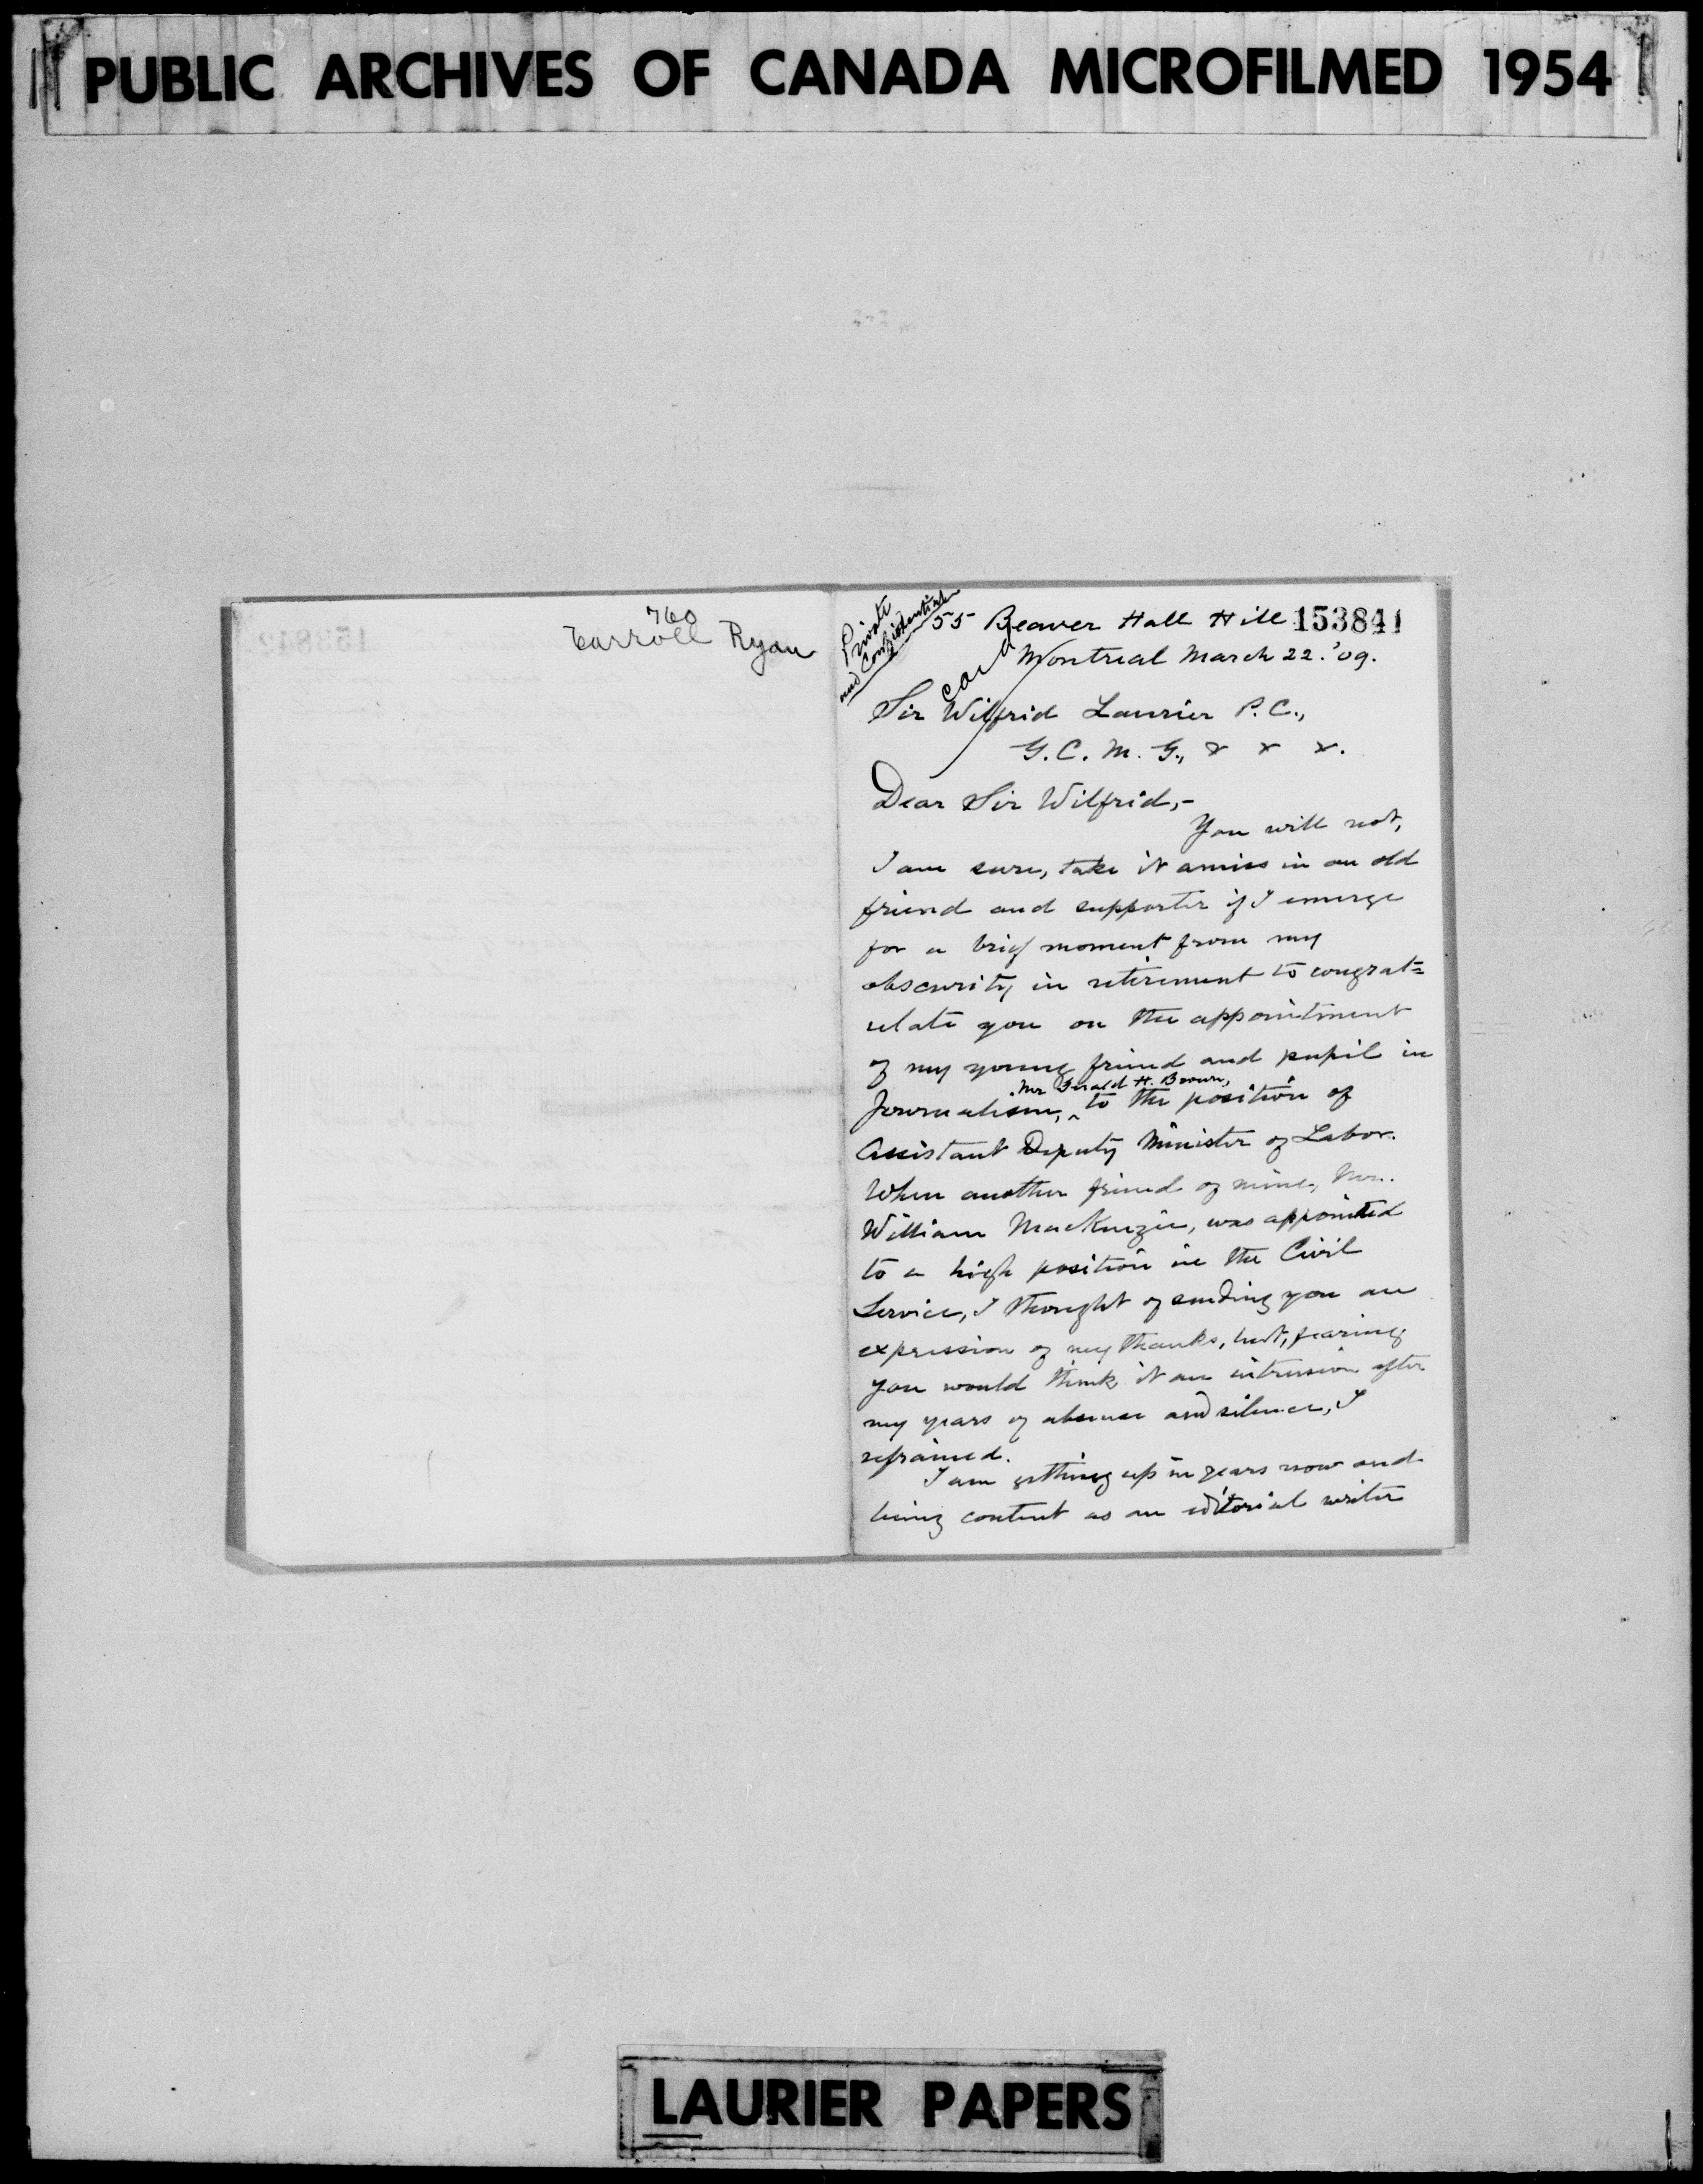 PUBLIC ARCHIVES OF CANADA MICROFILMED 1954
760
Carroll Ryan
Private
and Confidential
55 Beaver Hall Hill 153841
Montreal March 22. '09.
card
Sir Wilfrid Laurier P.C.,
G.C.M.G., & & &.
Dear Sir Wilfrid,-
You will not,
I am sure, take it amiss in an old
friend and supporter if I emerge
for a brief moment from my
obscurity in retirement to congrat=
ulate you on the appointment
of my young friend and pupil in
Mr Gerald H. Brown,
Journalism, ^ to the position of
Assistant Deputy Minister of Labor.
When another friend of mine, Mr.
William MacKenzie, was appointed
to a high position in the Civil
Service, I thought of sending you an
expression of my thanks, but, fearing
you would think it an intrusion after
my years of absence and silence, I
refrained.
I am getting up in years now and
living content as an editorial writer
LAURIER PAPERS